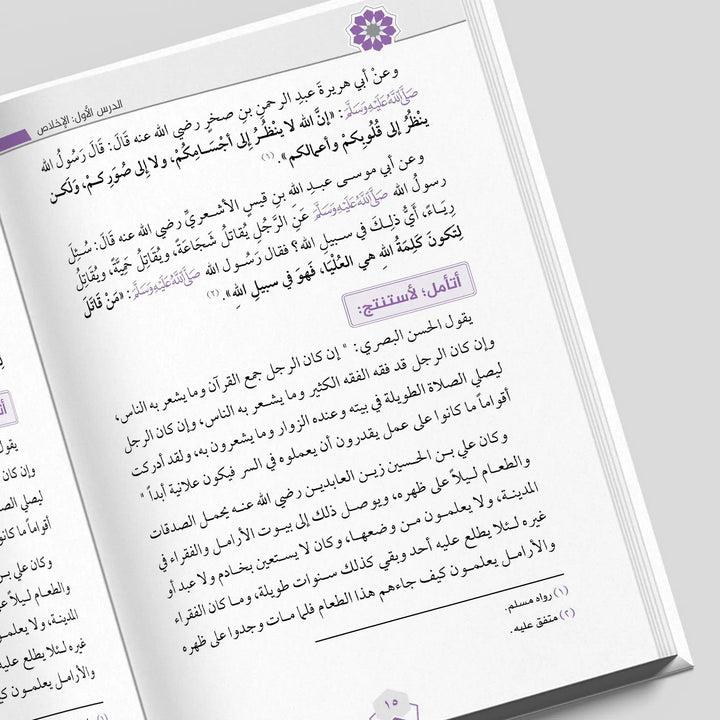 الدرس الأول: الإخلاص
وعنْ أبي هريرةَ عبدِ الرحمنِ بنِ صخرٍ رضي الله عنه قَالَ: قَالَ رَسُولُ الله
صَلَّى اللَّهُ عَلَيْهِ وَسَلَّمَ: «إنَّ الله لا ينْظُرُ إلى أجْسَامِكُمْ، ولا إلى صُوَرِكمْ، وَلَكن
ينْظُرُ إلى قُلُوبِكمْ وأعمالكم». (١)
وعن أبي موسى عبدِ الله بنِ قيسٍ الأشعريِّ رضي الله عنه قَالَ: سُئِلَ
رسولُ الله صَلَّى اللَّهُ عَلَيْهِ وَسَلَّمَ عَنِ الرَّجُلِ يُقاتلُ شَجَاعَةً، ويُقَاتِلُ حَمِيَّةً، ويُقَاتِلُ
رِيَاءً، أَيُّ ذلِكَ في سبيلِ الله؟ فقال رَسُول الله صَلَّى اللَّهُ عَلَيْهِ وَسَلَّمَ: «مَنْ قَاتَلَ
لِتَكونَ كَلِمَةُ اللهِ هي العُلْيَا، فَهوَ في سبيلِ اللهِ». (٢)
أتأمل؛ لأستنتج:
يقول الحسن البصري: " إن كان الرجل جمع القرآن وما يشعر به الناس،
وإن كان الرجل قد فقه الفقه الكثير وما يشعر به الناس، وإن كان الرجل
ليصلي الصلاة الطويلة في بيته وعنده الزوار وما يشعرون به، ولقد أدركت
أقواماً ما كانوا على عمل يقدرون أن يعملوه في السر فيكون علانية أبداً "
وكان علي بن الحسين زين العابدين رضي الله عنه يحمل الصدقات
والطعام ليلاً على ظهره، ويوصل ذلك إلى بيوت الأرامل والفقراء في
المدينة، ولا يعلمون من وضعها، وكان لا يستعين بخادم ولا عبد أو
غيره لئلا يطلع عليه أحد وبقي كذلك سنوات طويلة، وما كان الفقراء
والأرامل يعلمون كيف جاءهم هذا الطعام فلما مات وجدوا على ظهره
(١) رواه مسلم.
(٢) متفق عليه.
١٥
يقول
وإن كان
ليصلي الص
أقواماً ما كانو
وكان علي بـ
والطعام ليلاً
المدينة، ولا يعلمو
غيره لئلا يطلع عليه
والأرامل يعلمون كيف